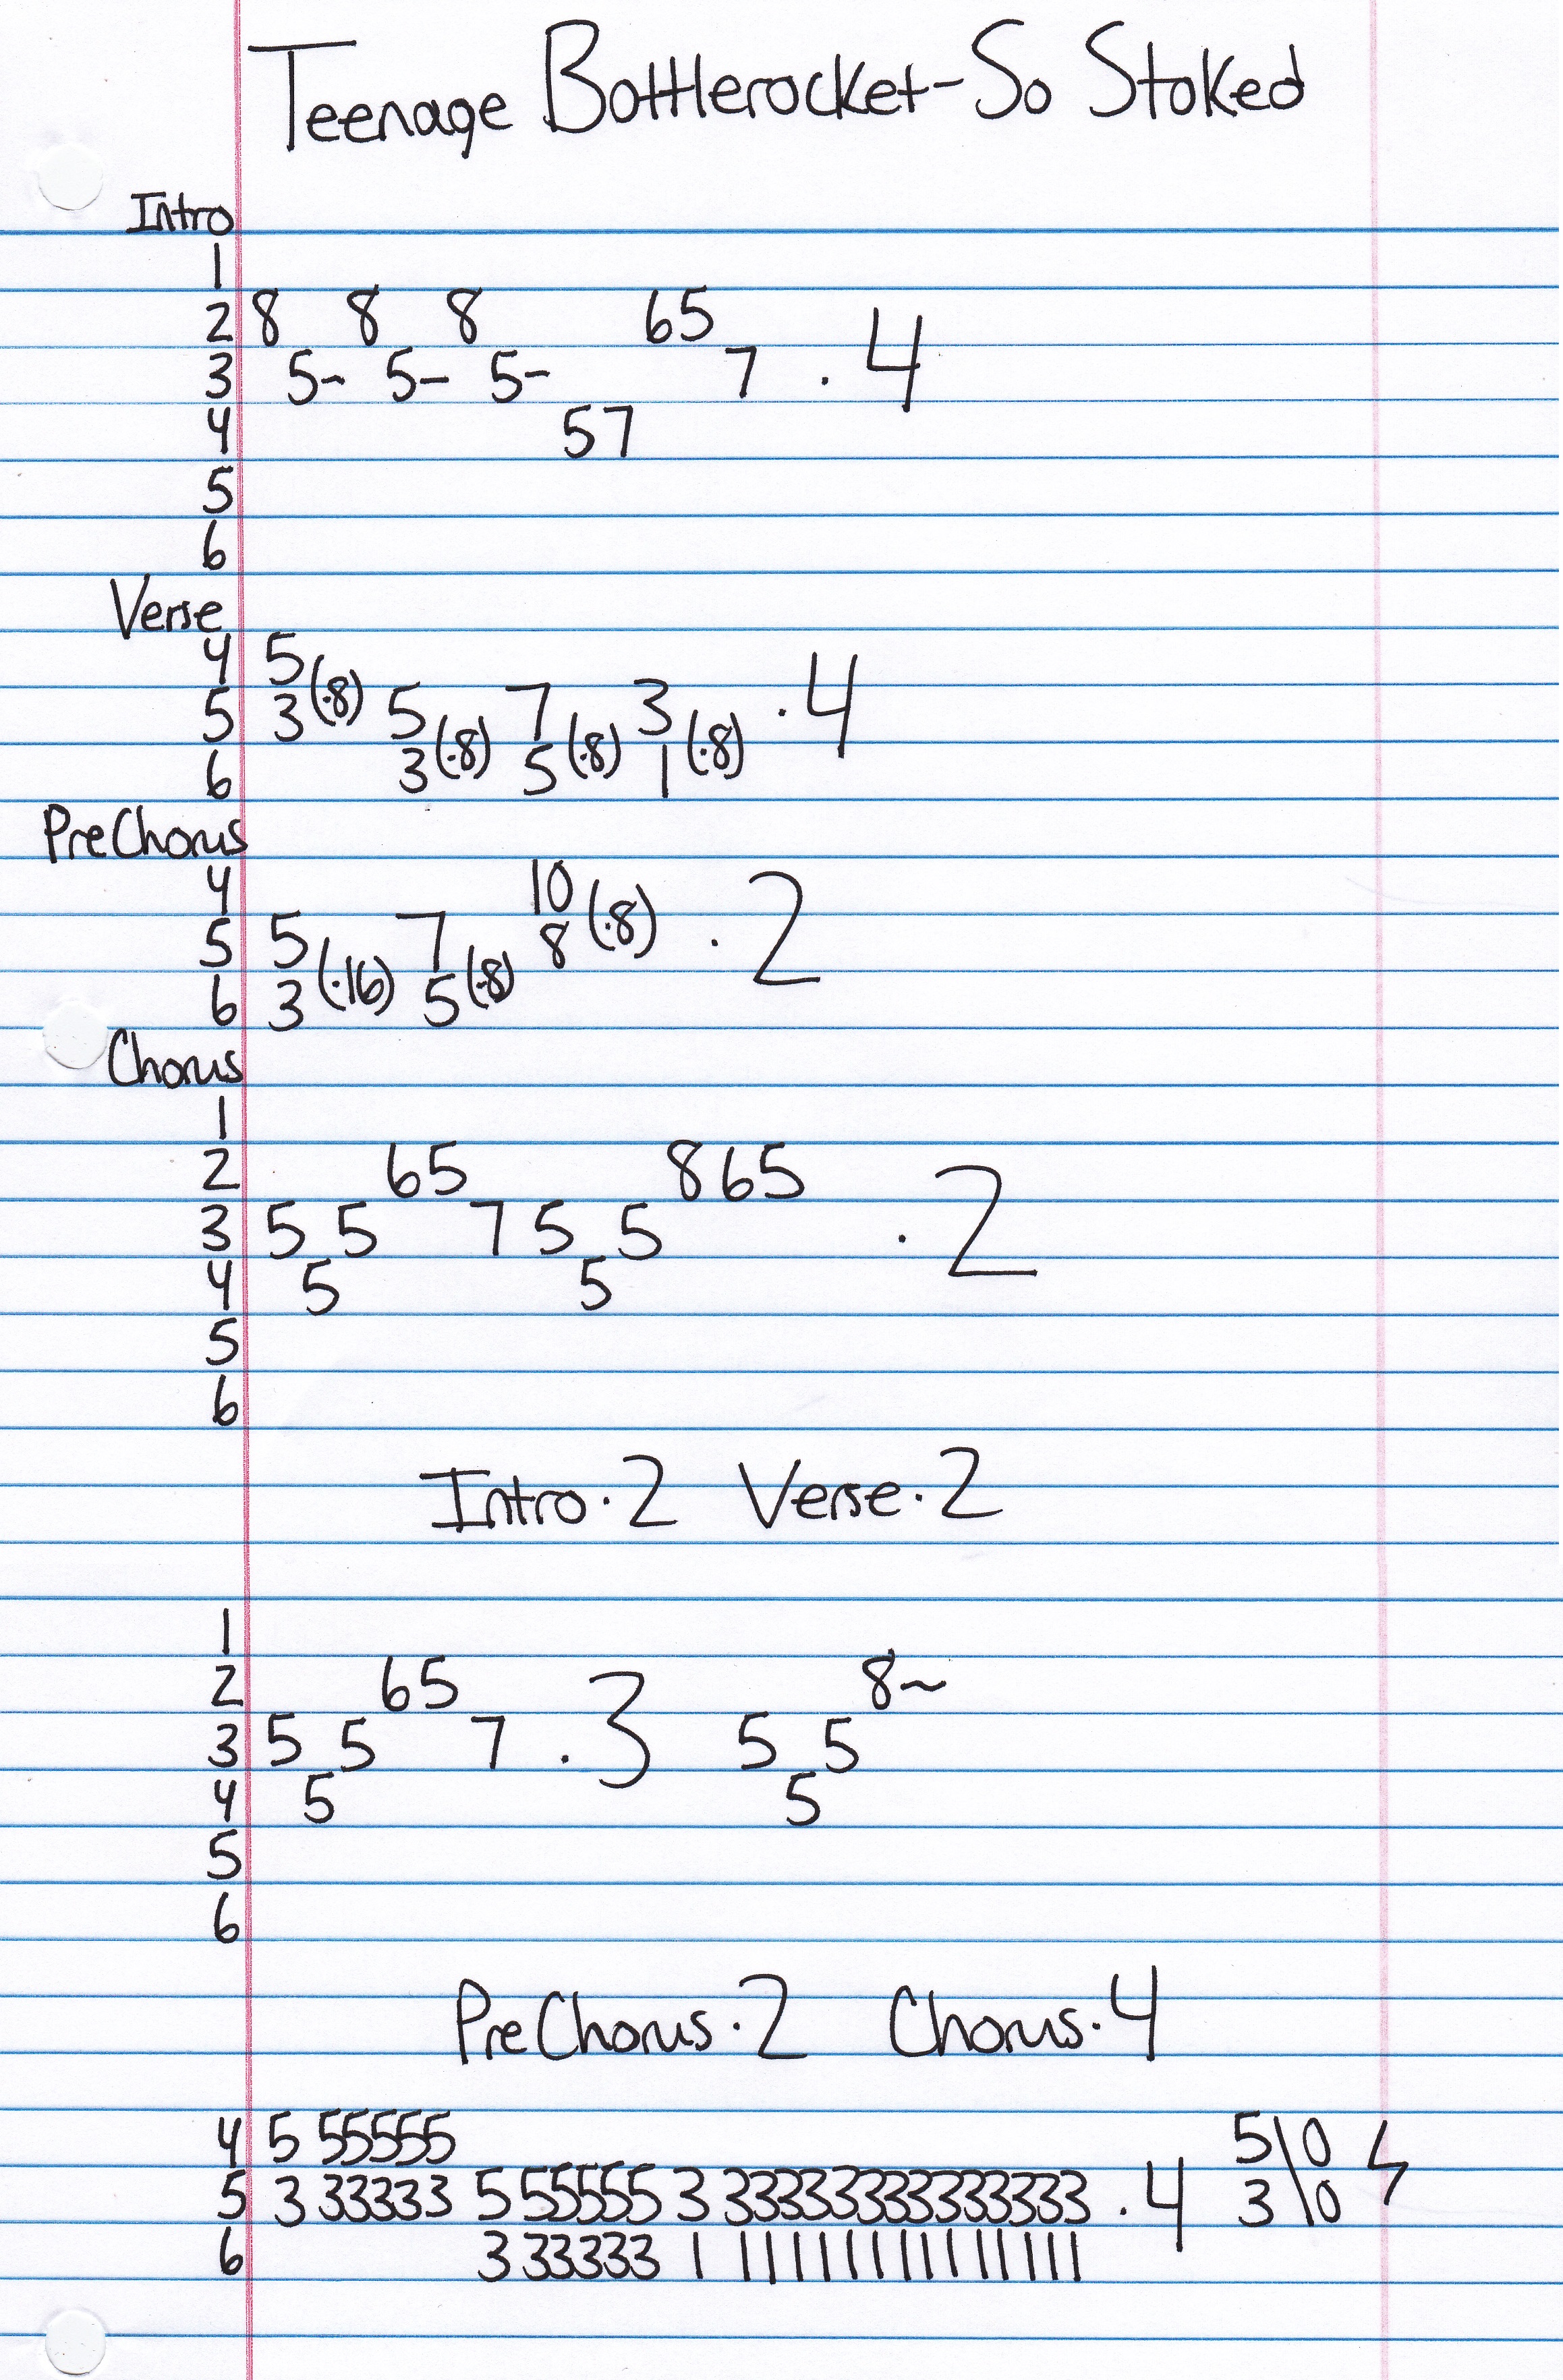 Teenage Bottlerocket-So Stoked
Intro
1
2 8 8 8 65
3 5~ 5- 5- 7 . 4
4 57
5
6
Verse
4 5
5 3(·8) 5 7 3 · 4
6 3(·8) 5(·8) 1(·8)
PreChorus
4 10
5 5 7 8(·8) · 2
6 3(·16) 5(·8)
Chorus
1
2 65 865
3 5 5 7 5 5 · 2
4 5 5
5
6
Intro·2 Verse·2
1
2 65 8~
3 5 5 7 . 3 5 5
4 5 5
5
6
PreChorus·2 Chorus·4
4 5 55555 5\0
5 3 33333 5 55555 3 33333333333333 · 4 3\0
6 3 33333 1 1111111111111